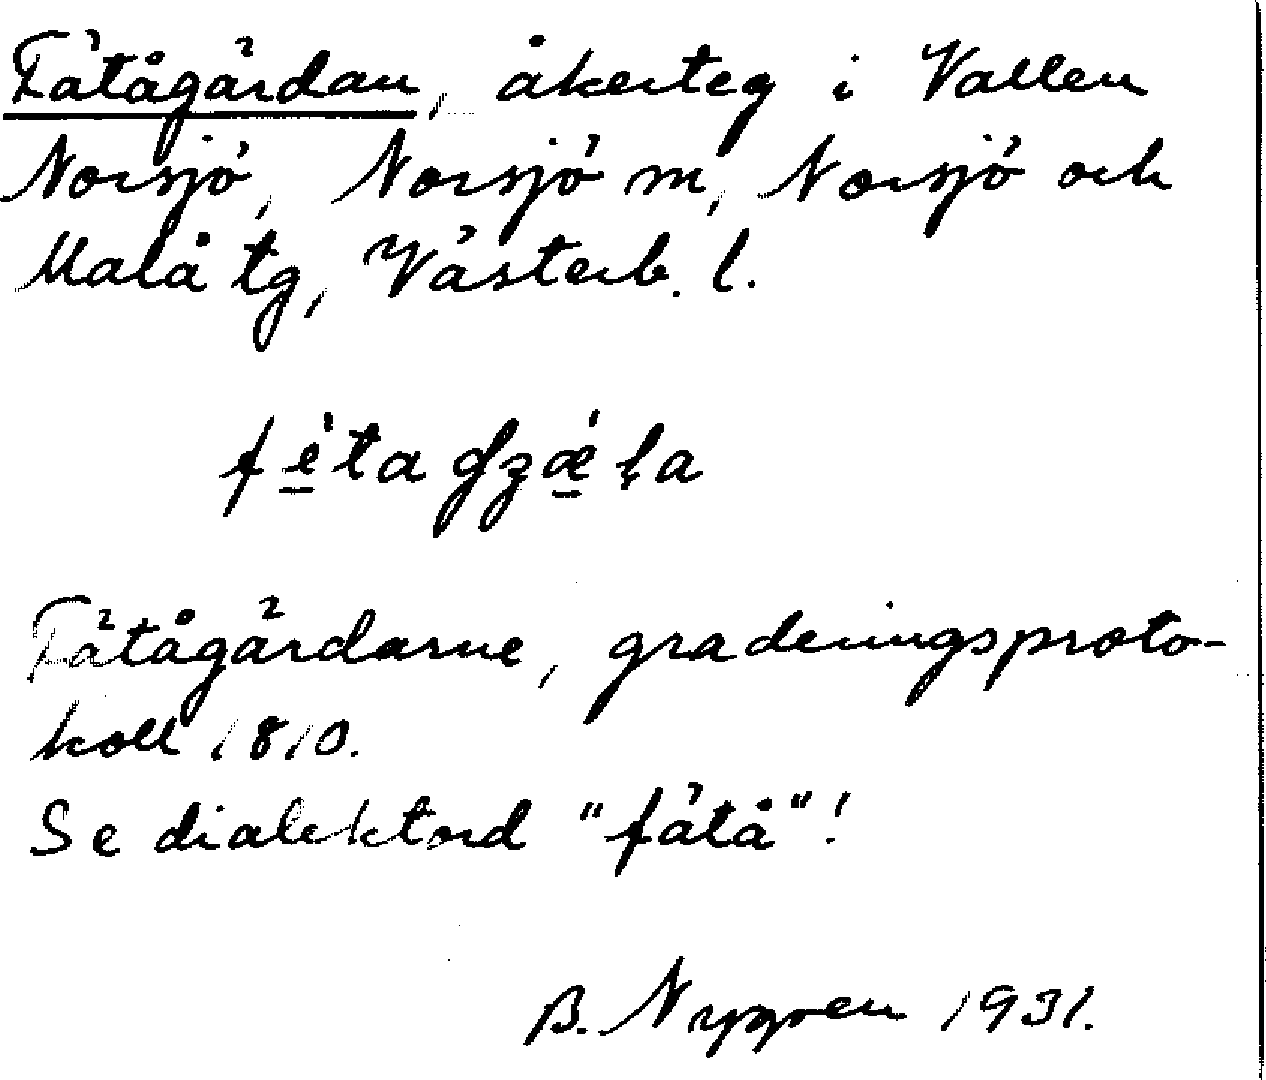 Fätågärdan, åkerteg i Vallen
Norsjö, Norsjö m, Norsjö och
Malå tg, Västerb. l.
fè̱ta gʒǽ̱ɭa
Fätågärdarne, graderingsproto-
koll 1810.
Se dialektord "fätå"!
B. Nygren 1931.